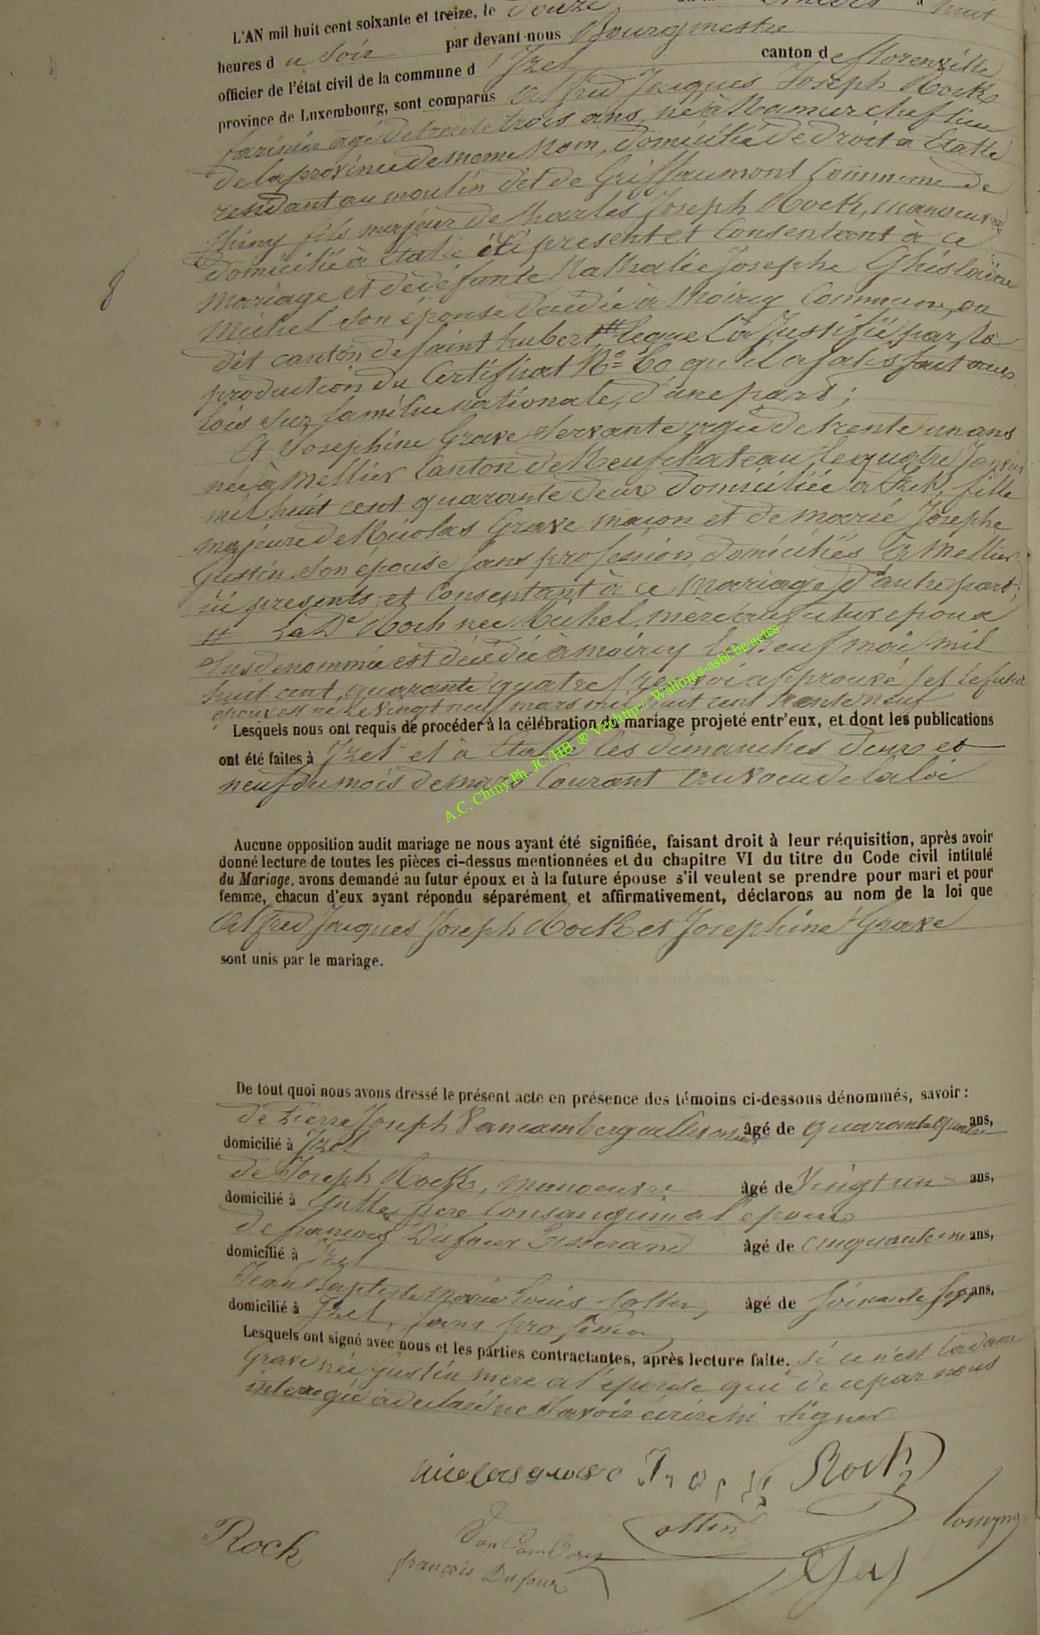 L'AN mil huit cent soixante et treize, le Douze à huit
heures du Soir par devant nous Bourgmestre
officier de l'état civil de la commune d'Izel canton de florenville
province de Luxembourg, sont comparus Alfred Jacques Joseph Rock
agé de trente trois ans, né à Namur chef lieu
de la province de meme Nom, domicilié de droit a Etalle
residant au moulin dit de Griffaumont Commune de
Chiny fils majeur de Charles Joseph Rock, manoeuvre
domicilié à Etalle ici present et Consentant à ce
mariage et de défunte Nathalie Josephe Ghislaine
Michel son épouse décédée à Moircy Commune, on
dit canton de saint hubert # lequel a justifié par la
production du Certificat No 60 qu'il a satisfait aux
lois sur la milice nationale, d'une part;
Et Josephine Grave Servante agée de trente un ans
née à Mellier Canton de Neufchateau le quatre Janvier
mil huit cent quarante deux domiciliée à Izel, fille
majeure de Nicolas Grave maçon et de marie Josephe
Justin son épouse sans profession, domiciliés à Mellier
ici presents et Consentant à ce mariage, d'autre part;
# La De Rock née Michel, mère du futur epoux
susdenommée est décédée à moircy le neuf mai mil
huit cent quarante quatre (renvoi approuvé) et le futur
époux est né le vingt neuf mars mil huit cent trente neuf
Lesquels nous ont requis de procéder à la célébration du mariage projeté entr'eux, et dont les publications
ont été faites à Izel et à Etalle les dimanches deux et
neuf du mois de mars Courant au voeu de la loi
Aucune opposition audit mariage ne nous ayant été signifiée, faisant droit à leur réquisition, après avoir
donné lecture de toutes les pièces ci-dessus mentionnées et du chapitre VI du titre du Code civil intitulé
du Mariage, avons demandé au futur époux et à la future épouse s'il veulent se prendre pour mari et pour
femme, chacun d'eux ayant répondu séparément et affirmativement, déclarons au nom de la loi que
Alfred Jacques Joseph Rock et Josephine Grave
sont unis par le mariage.
De tout quoi nous avons dressé le présent acte en présence des témoins ci-dessous dénommés, savoir :
de Pierre Joseph âgé de quarante quatre ans,
domicilié à Izel
de Joseph Rock, manoeuvre âgé de Vingt un ans,
domicilié à frere Consanguin a l'epoux
de françois Dufour Tisserand âgé de cinquante un ans,
domicilié à Izel
Jean Baptiste Marie Louis Collin, âgé de soixante sept ans,
domicilié à Izel, sans profession
Lesquels ont signé avec nous et les parties contractantes, après lecture faite. si ce n'est la dame
Grave née Justin mere a l'épouse qui de ce par nous
interrogée a déclaré ne savoir écrire ni signer
nicolas grave J Rock
Rock Collin
françois Dufour
A.C. Chiny Ph. JC /HB ® Via http:// Wallonia-asbl.be/actes
8